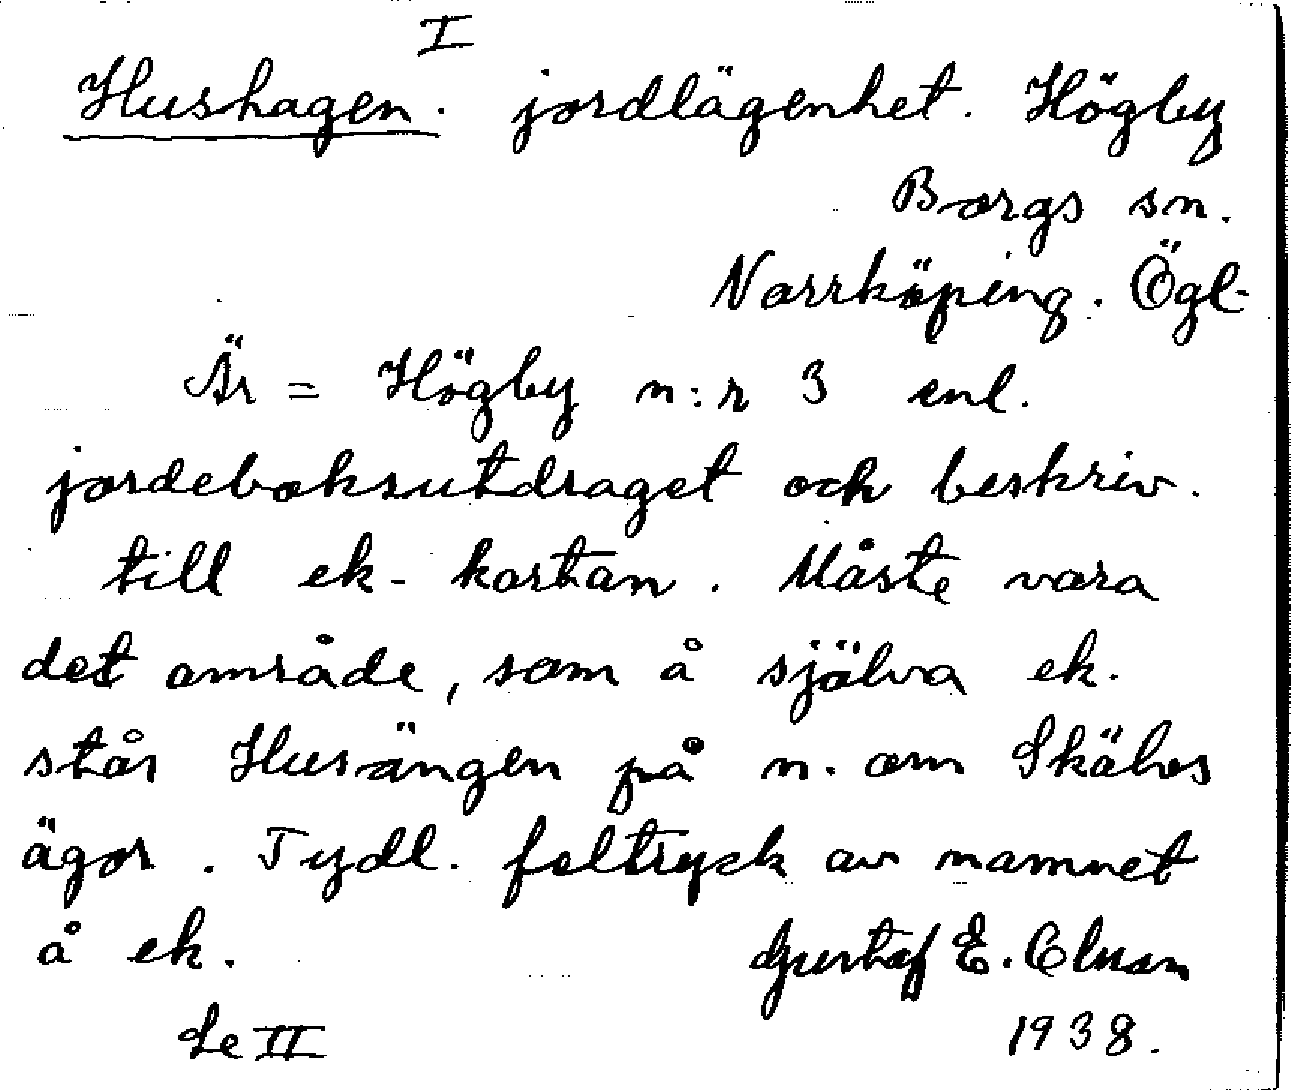 I
Hushagen. jordlägenhet. Högby
Borgs sn.
Norrköping. Ögl.
Är = Högby n:r 3 enl.
jordeboksutdraget och beskriv.
till ek-kartan. Måste vara
det område, som å själva ek.
står Husängen på n. om Skälvs
ägor. Tydl. feltryck av namnet
å ek. Gustaf E. Clason
Se II 1938.